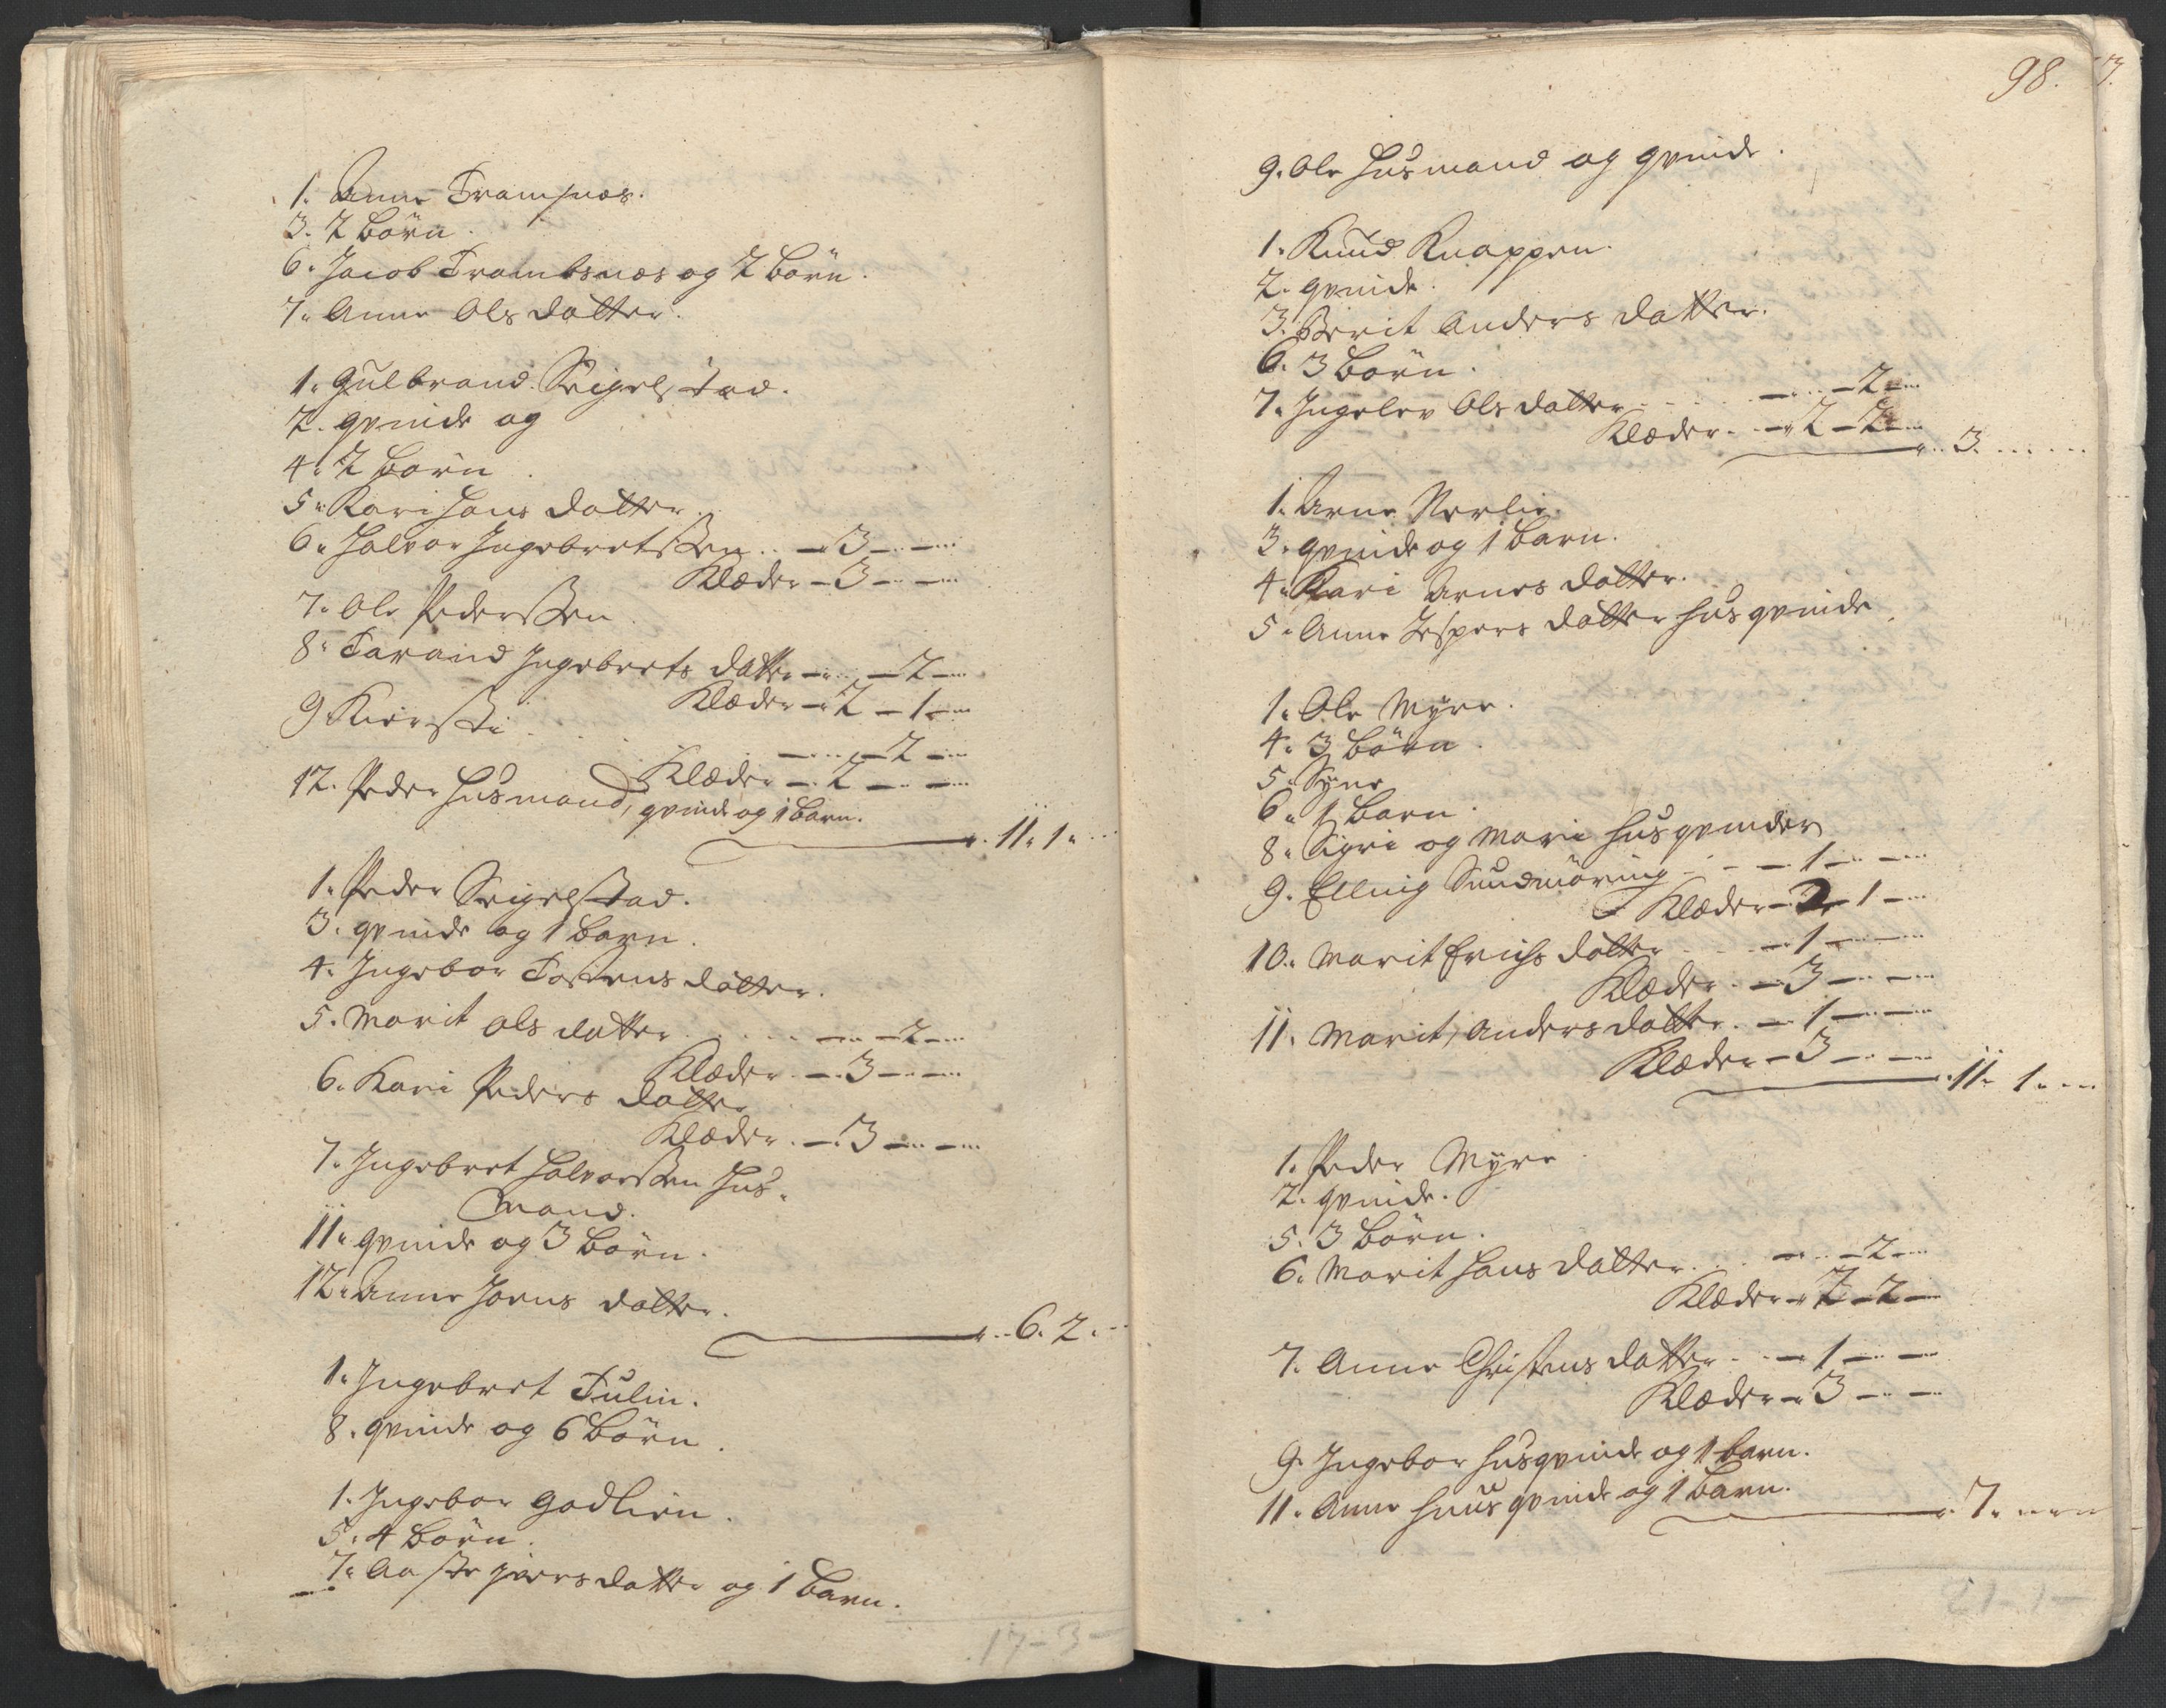 1. Anne Frampnæs.
3. 2 börn.
6. Jacob Frambsnæs og 2 börn.
7. Anne Ols datter.
1. Gulbrand Seigelstad.
2. qvinde og
4. 2 börn.
5. Kari Hans datter.
6. Halvor Ingebretssen .. – 3 – –
Klæder – 3 – –
7. Ole Pederssen
8. Tarand Ingebrets datter – – 2 –
Klæder – 2 – 1 –
9 Kiersti . . . – – 2 –
Klæder – 2 – –
12. Peder Husmand, qvinde og 1 barn.
11. 1.
1. Peder Seigelstad.
3. qvinde og 1 barn.
4. Ingebor Tostens datter.
5. Marit Ols datter . . . – – 2 –
Klæder – 3 – –
6. Kari Peders datter
Klæder – 3 – –
7. Ingebret Halvorssen Hus-
mand.
11. qvinde og 3 börn.
12. Anne Joens datter.
6. 2.
1. Ingebret Tulin.
8. qvinde og 6 börn.
1. Ingebor Godlien.
5. 4 börn.
7. Aaste Joers datter og 1 barn.
17 – 3 –
98.
9. Ole Husmand og qvinde.
1. Knud Knappen.
2. qvinde.
3. Berit Anders datter.
6. 3 börn.
7. Ingelev Ols datter . . – – 2 –
Klæder – 2 – 2 –
3.
1. Arne Nerlie.
3. qvinde og 1 barn.
4. Kari Arnes datter.
5. Anne Jespers datter husqvinde
1. Ole Myre.
4. 3 börn.
5. Syne
6. 1 barn.
8. Sigri og Marie husqvinder
9. Elling Sundmöring – 1 – –
Klæder – 2 – 1 –
10. Marit Erichs datter – 1 – –
Klæder – 3 – –
11. Marit Anders datter – 1 – –
Klæder – 3 – –
11. 1.
1. Peder Myre
2. qvinde.
5. 3 börn.
6. Marit Hans datter . . – – 2 –
Klæder – 2 – 2 –
7. Anne Christens datter – 1 – –
Klæder – 3 – –
9. Ingebor husqvinde og 1 barn.
11. Anne huusqvinde og 1 barn.
7.
21 – 1 –